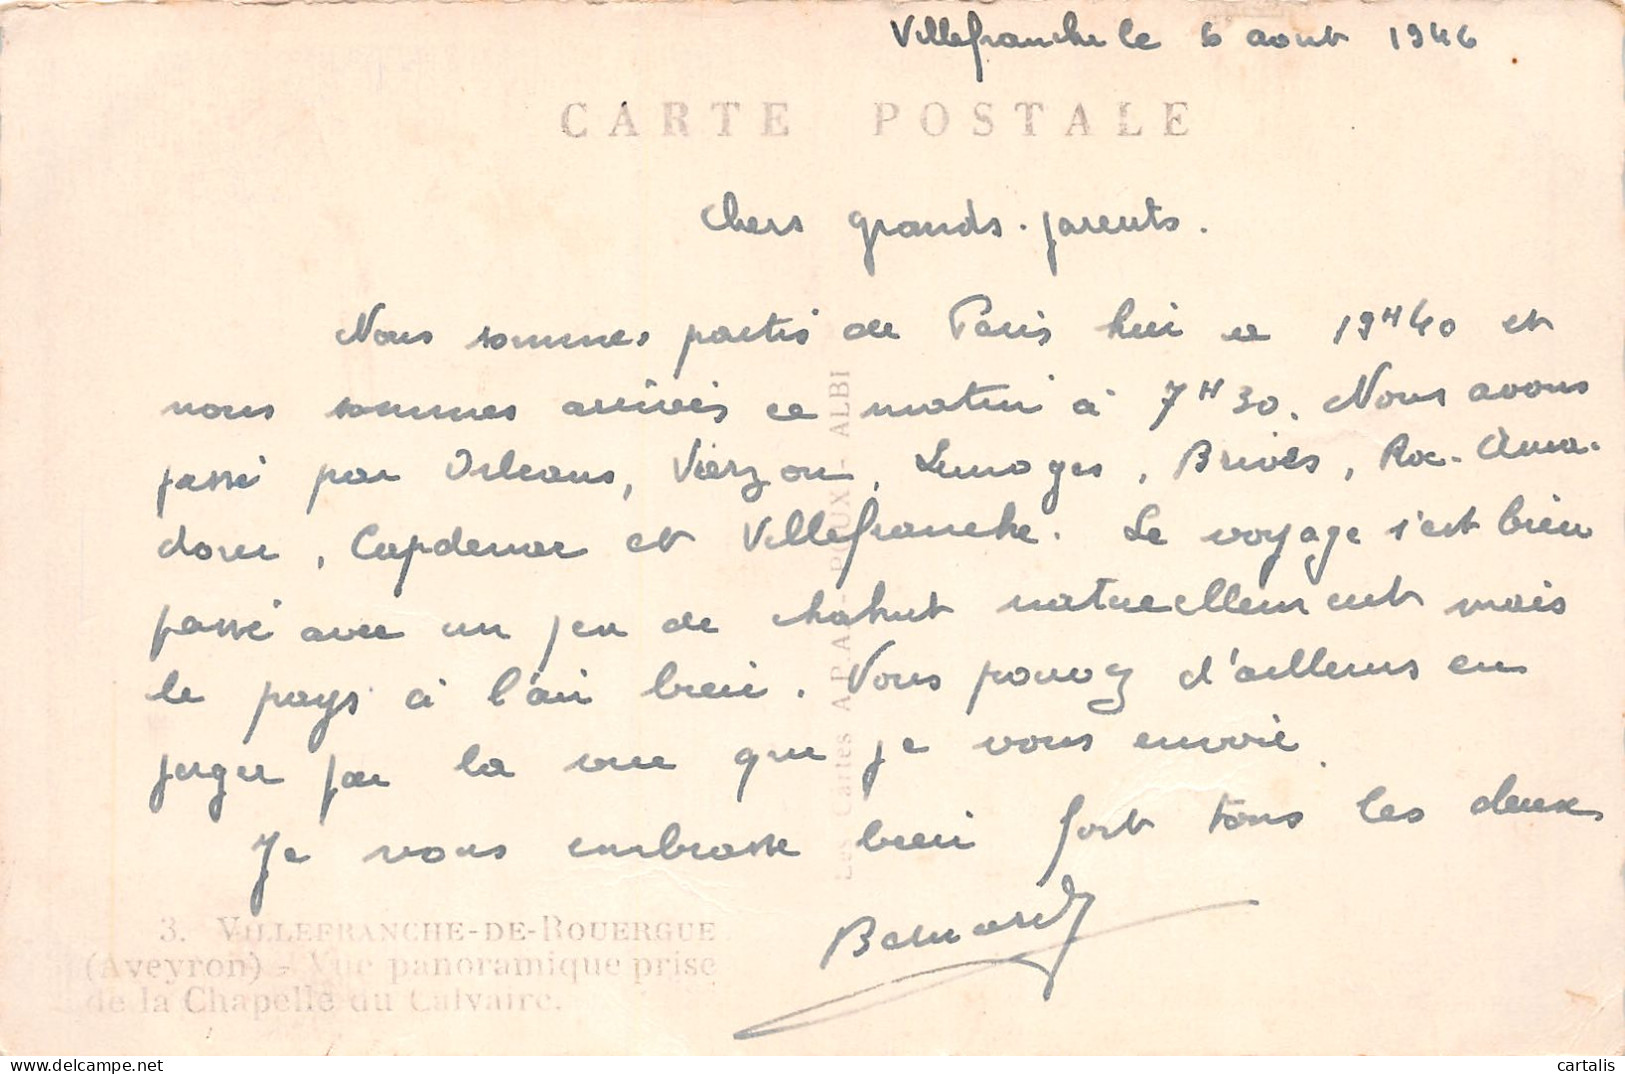 Villefranche le 6 aout 1946
CARTE POSTALE
Chers grands-parents.
Nous sommes partis de Paris hier a 19H40 et
nous sommes arrivés ce matin à 7H30. Nous avons
passé par Orleans, Vierzon, Limoges, Brives, Roc-Ama-
dour, Capdenac et Villefranche. Le voyage s'est bien
passé avec un peu de chahut naturellement mais
le pays à l'air bien. Vous pouvez d'ailleurs en
juger par la vue que je vous envoie.
Je vous embrasse bien fort tous les deux
Bernard
3. VILLEFRANCHE-DE-ROUERGUE
(Aveyron) - Vue panoramique prise
de la Chapelle du Calvaire.
Les Cartes A.P.A. - POUX - ALBI
cartalis